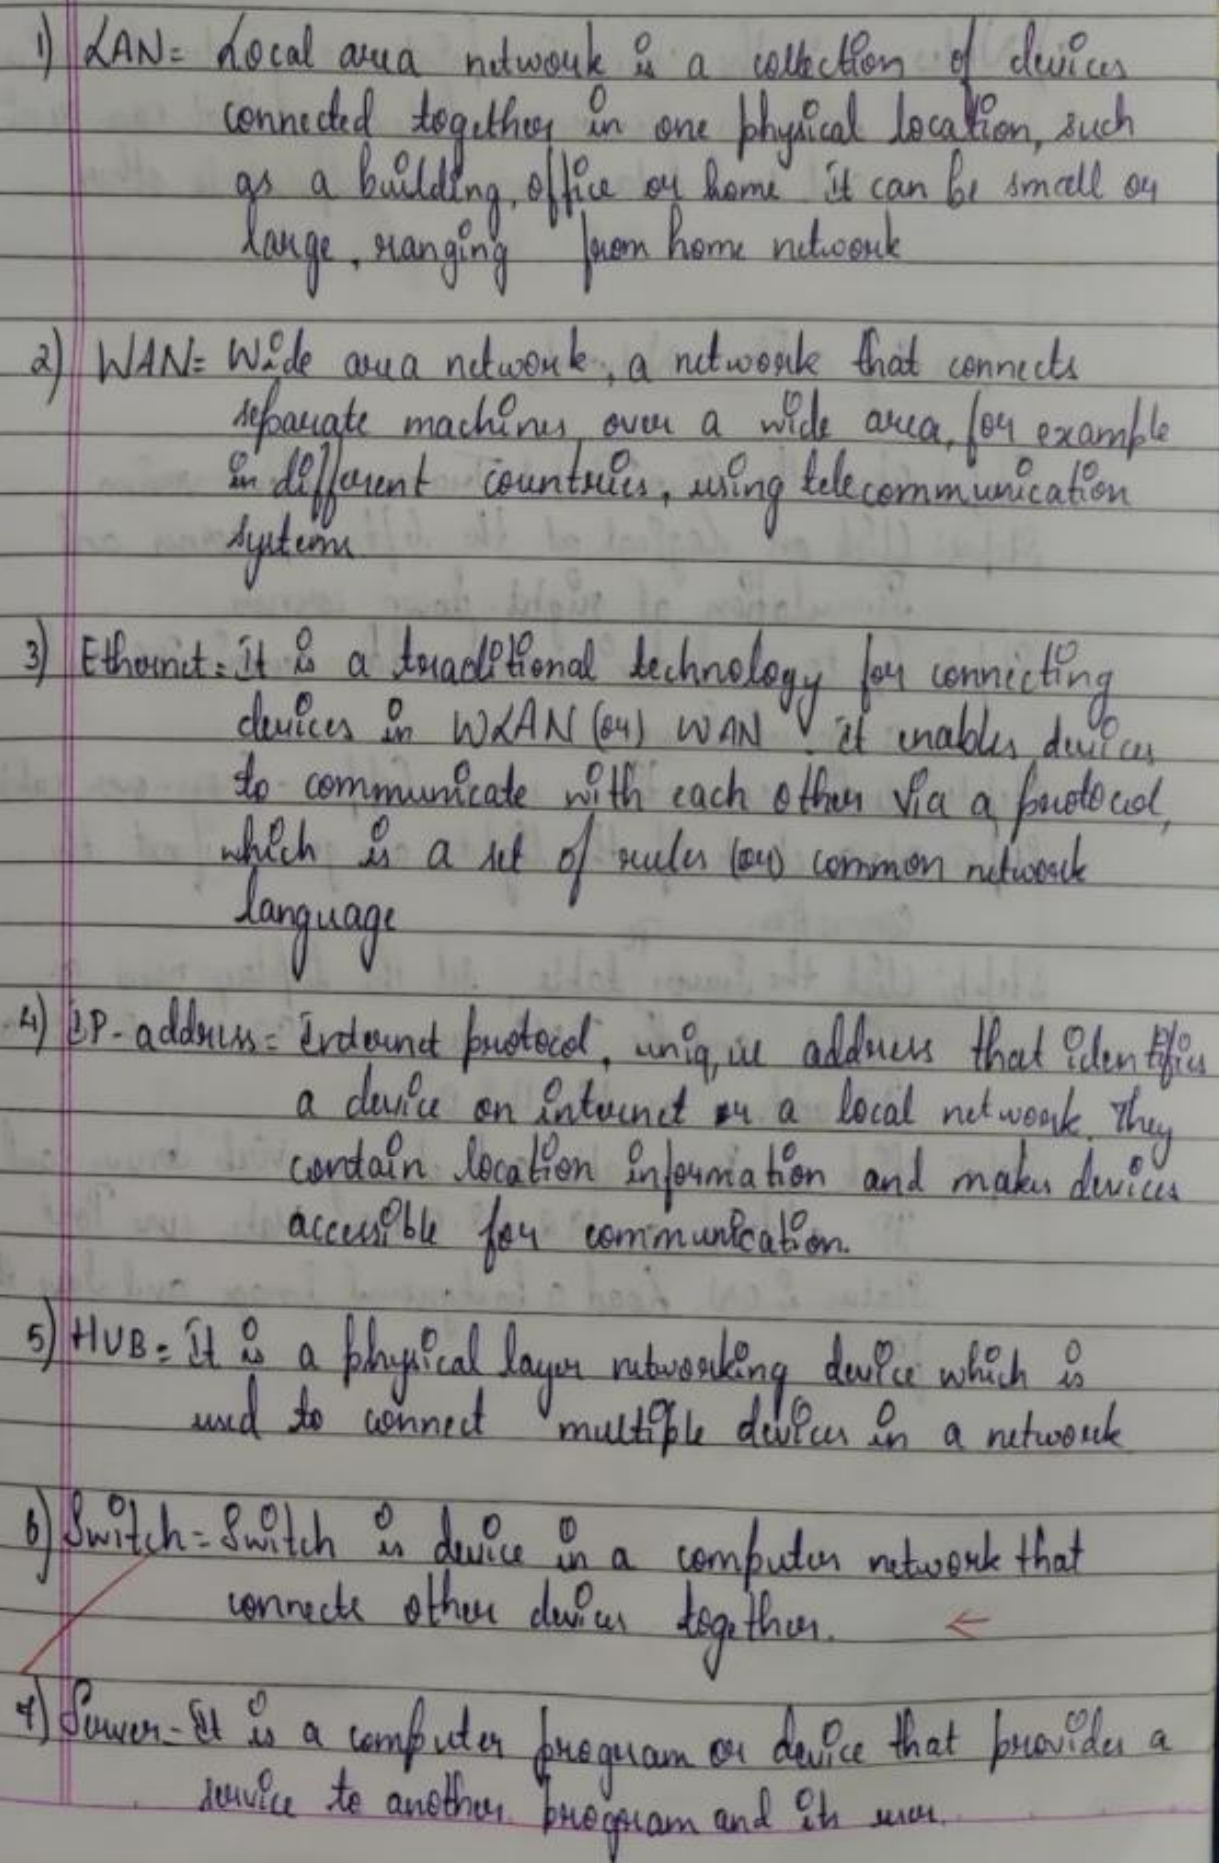 1) LAN = Local area network is a collection of devices
connected together in one physical location, such
as a building, office or home it can be small or
large, ranging from home network
2) WAN = Wide area network, a network that connects
separate machines over a wide area, for example
in different countries, using telecommunication
system
3) Ethernet = it is a traditional technology for connecting
devices in WLAN (or) WAN it enables devices
to communicate with each other via a protocol,
which is a set of rules (or) common network
language
4) IP-address = internet protocol, unique address that identifies
a device on internet or a local network. They
contain location information and makes devices
accessible for communication.
5) HUB = it is a physical layer networking device which is
used to connect multiple devices in a network
6) Switch = Switch is device in a computer network that
connects other devices together.
7) Server - it is a computer program or device that provides a
service to another program and its user.